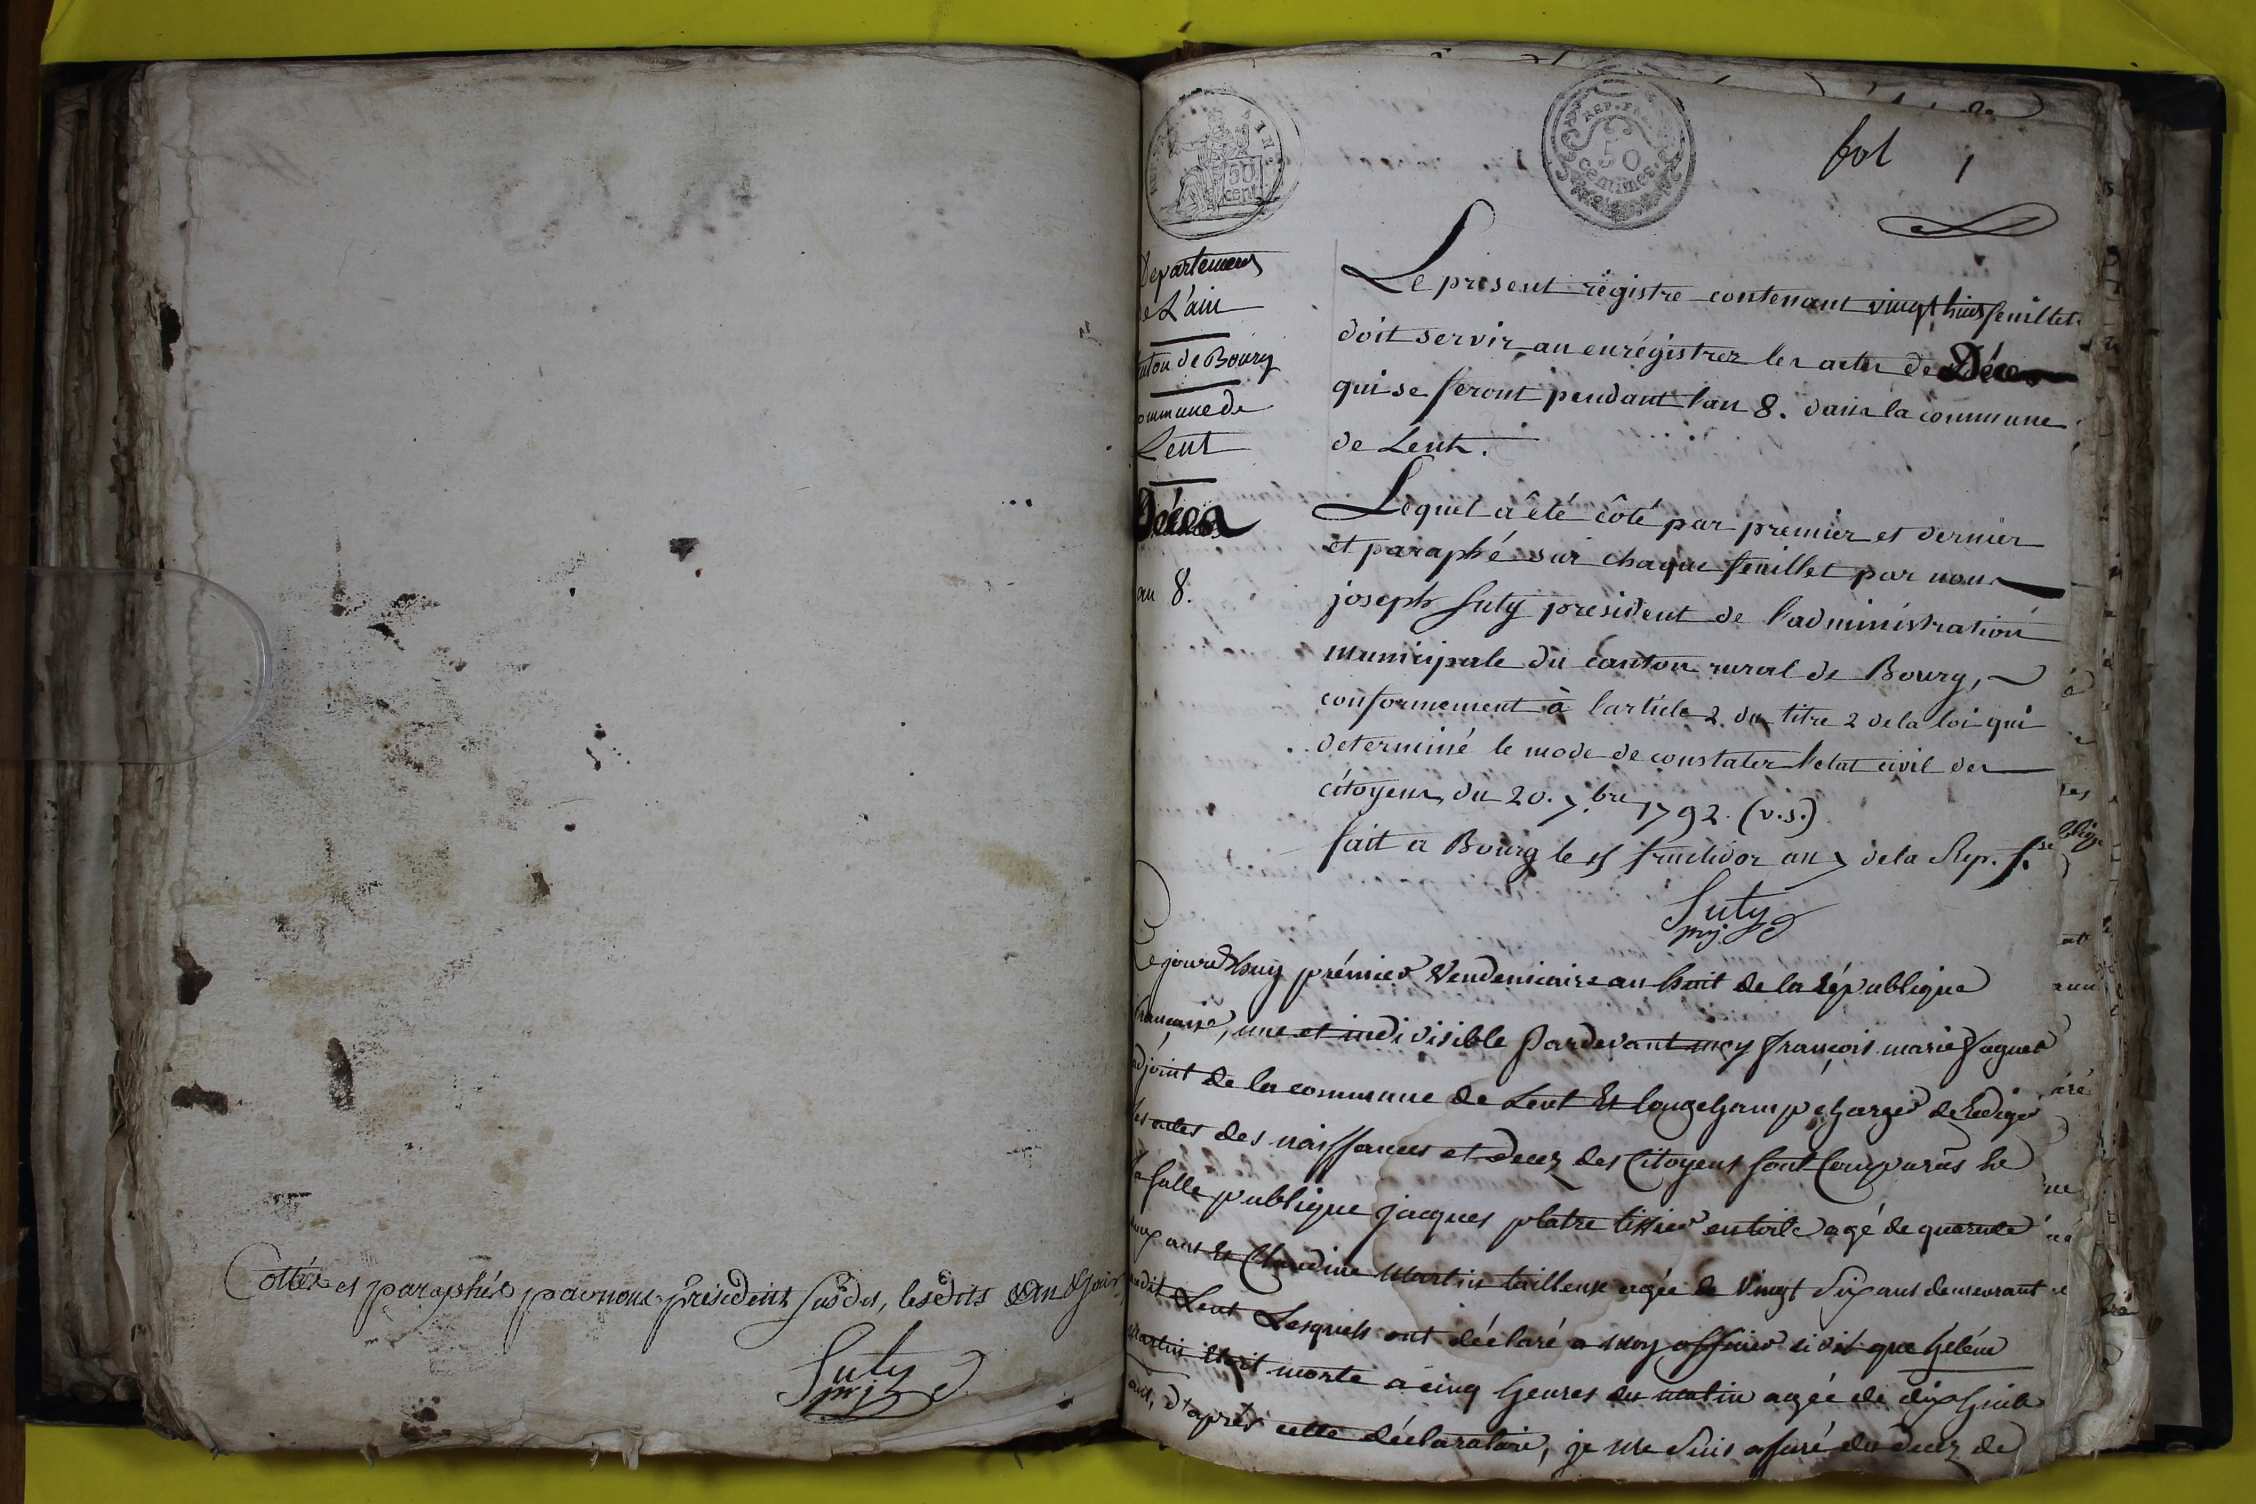 Cottés et paraphés par nous président susdit, lesdits an & jour
Suty
prés.
50
cent
REP. FRA
50
Centimes
fol 1
Departement
de L'ain
canton de Bourg
commune de
Lent
Décès
an 8.
Le présent régistre contenant vingt huit feuillets
doit servir au enrégistrer les actes de Décès
qui se feront pendant l'an 8. dans la commune
de Lent.
Lequel a été côté par premier et dernier
et paraphé sur chaque feuillet par nous
joseph Suty president de l'administration
municipale du canton rural de Bourg,
conformement à l'article 2 du titre 2 de la loi qui
determiné le mode de constater l'etat civil des
citoyens, du 20. 7.bre 1792. (v.s.)
fait a Bourg le fructidor an 7 de la Rep. f.se
Suty
prés.
Ce jourd'huy prémier Vendemiaire an huit de la République
française, une et indivisible pardevant moy françois marie faguet
adjoint de la commune de Lent Et longchamp chargé de Rediger
les actes des naissances et decez des Citoyens sont Comparus
la salle publique jacques platre tissier en toile agé de quarente
deux ans Et Claudine Martin tailleuse agée de vingt six ans demeurant
audit Lent Lesquels ont déclaré a moy officier civil que heléne
Martin Etoit morte a cinq heures du matin agée de dix huit
ans, d'aprés cette déclaration, je me suis assuré du decez de